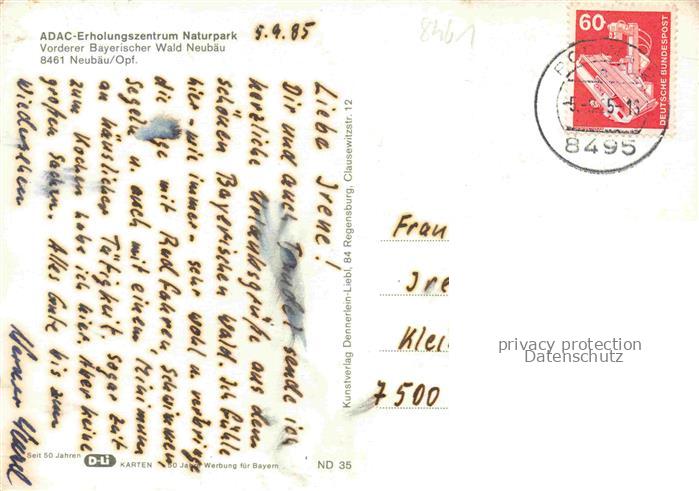 ADAC-Erholungszentrum Naturpark
Vorderer Bayerischer Wald Neubäu
8461 Neubäu/Opf.
5.9.85
8461
60
DEUTSCHE BUNDESPOST
8495
Liebe Irene!
Dir und auch sende ich
herzliche Urlaubsgrüße aus dem
schönen Bayerischen Wald. Ich fühle
hier - wie immer - sehr wohl u. verbringe
die Tage mit Radfahren, Schwimmen,
Segeln u. auch mit einem Minimum
an häuslicher Tätigkeit. Sogar Zeit
zum Kochen habe ich hier. Aber keine
großen Sachen. Alles Gute bis zum
Wiedersehen
Kunstverlag Dennerlein-Liebl, 84 Regensburg, Clausewitzstr. 12
Frau
Ire
Klei
7500
privacy protection
Datenschutz
Seit 50 Jahren D-Li KARTEN 50 Jahre Werbung für Bayern ND 35